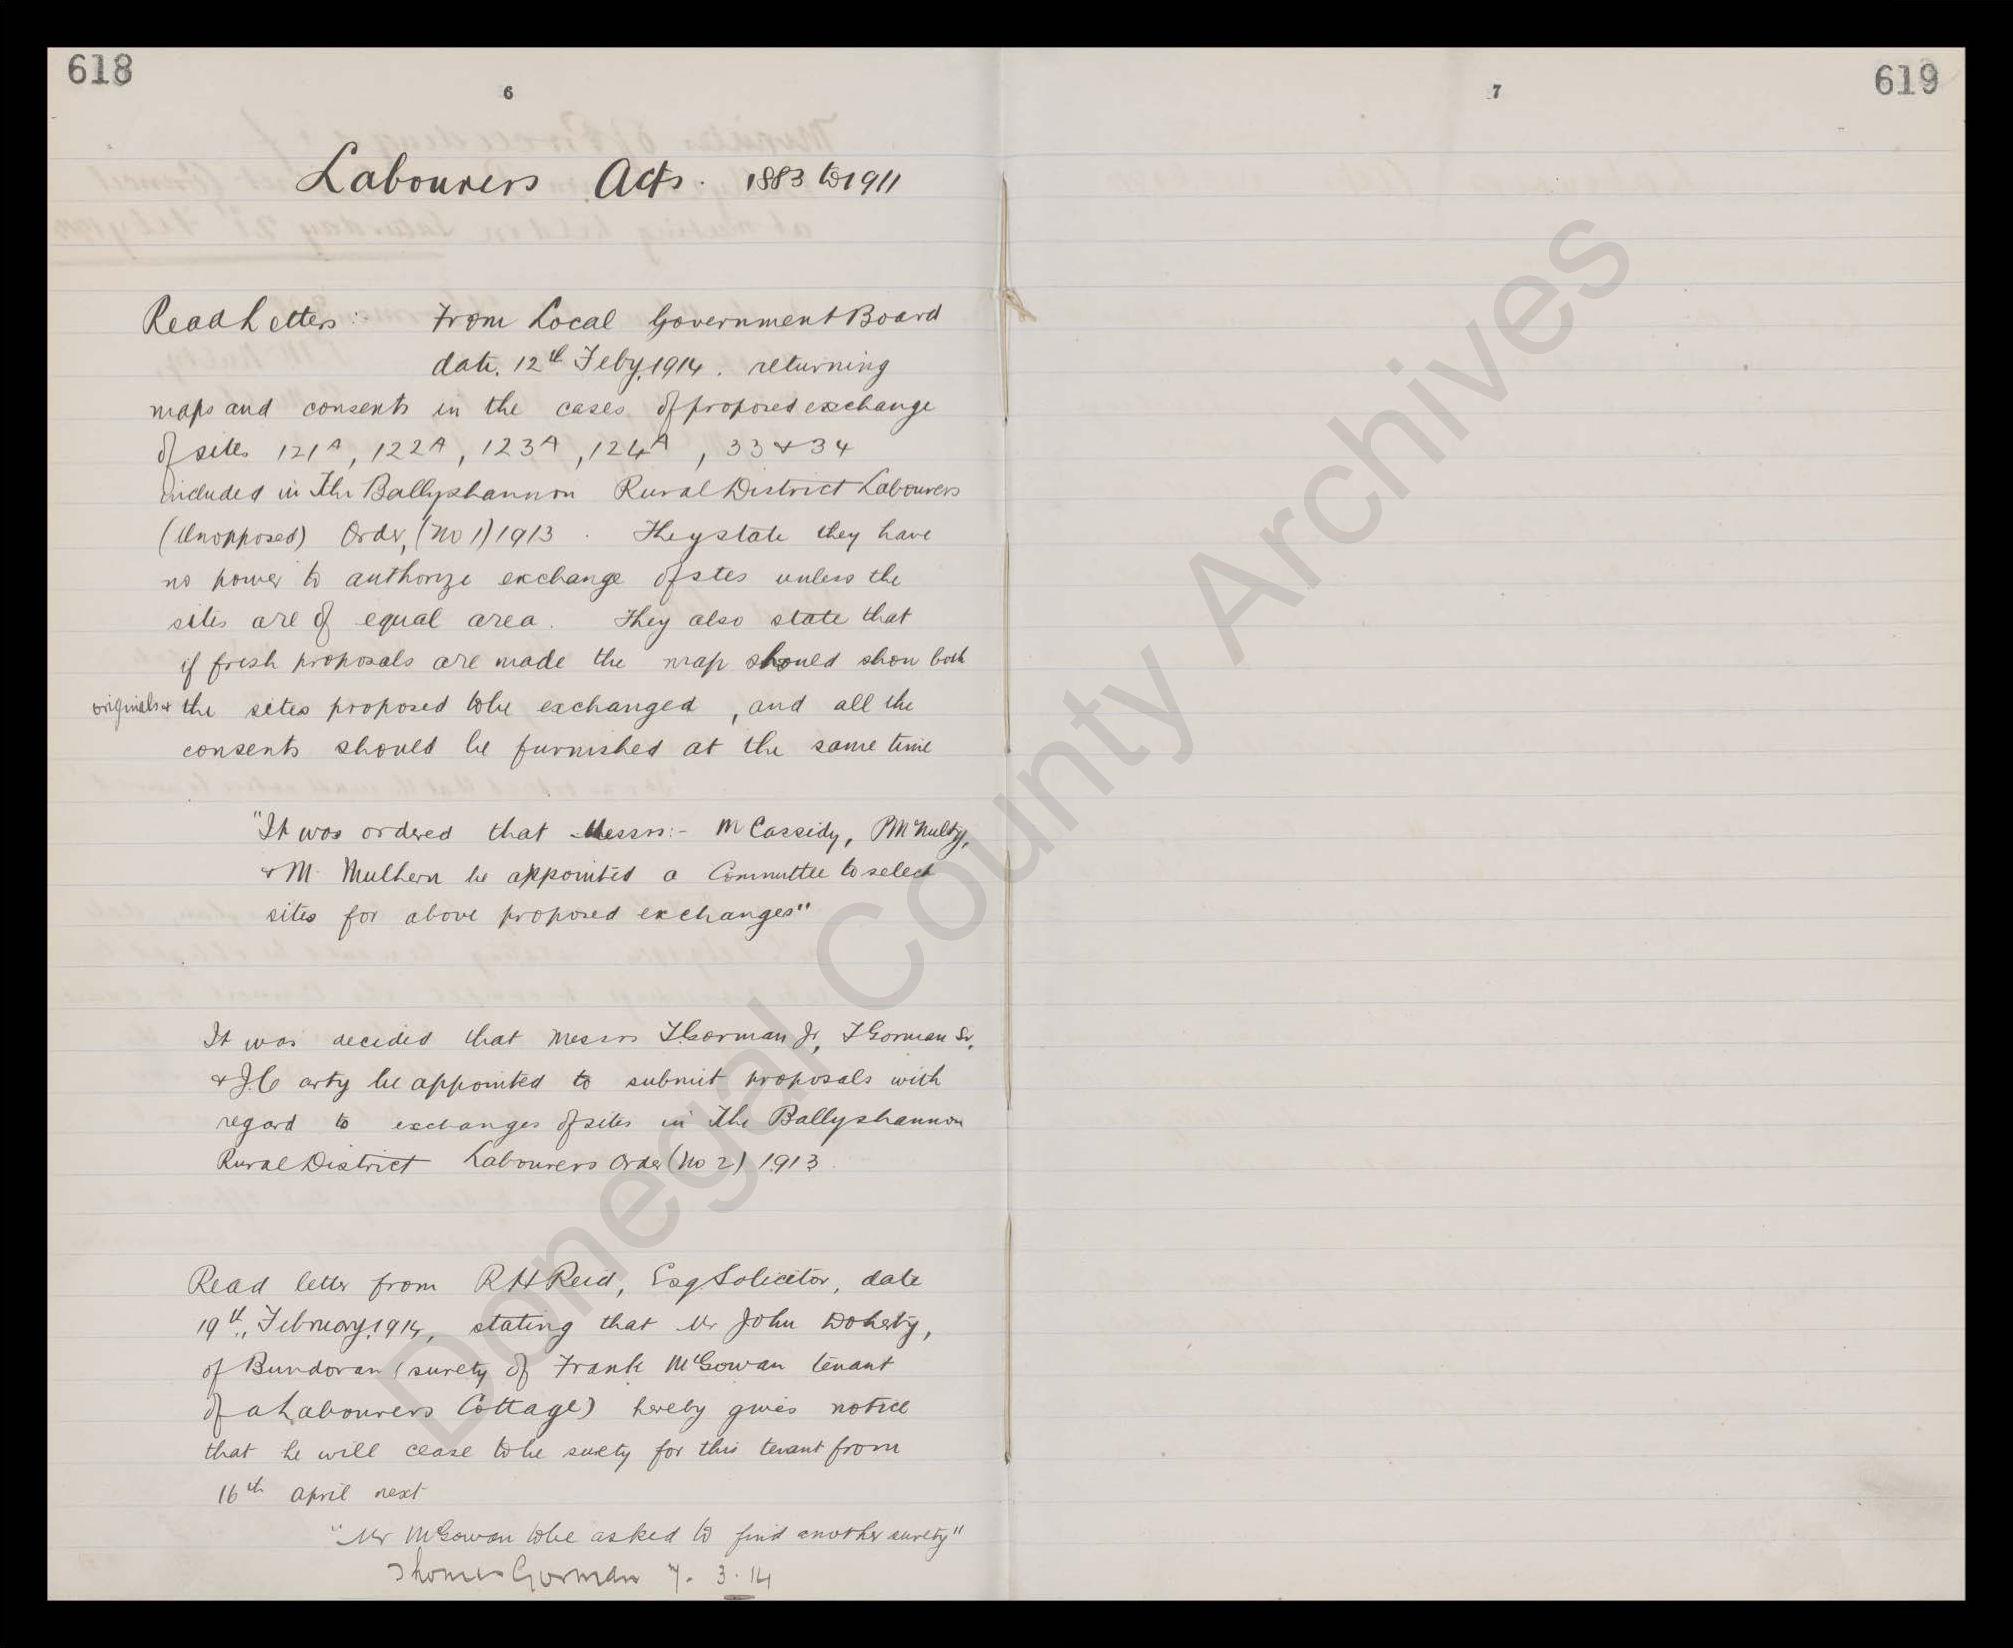 618
6
Labourers Acts. 1883 to 1911
Read Letters:- From Local Government Board
date. 12th Feby, 1914. returning
maps and consents in the cases of proposed exchange
of sites 121A, 122A, 123A, 124A, 33 & 34
included in The Ballyshannon Rural District Labourers
(Unopposed) Order, (No 1) 1913. They state they have
no power to authorize exchange of stes unless the
sites are of equal area. They also state that
if fresh proposals are made the map should show both
originals & the sites proposed to be exchanged, and all the
consents should be furnished at the same time
"It was ordered that Messrs:- M Cassidy, P McNulty,
& M. Mulhern be appointed a Committee to select
sites for above proposed exchanges"
It was decided that Messrs T Gorman Jr, T Gorman Sr,
& J. Carty be appointed to submit proposals with
regard to exchanges of sites in The Ballyshannon
Rural District Labourers Order (No 2) 1913.
Read letter from R H Reid, Esq Solicitor, date
19th., February, 1914, stating that Mr John Doherty,
of Bundoran (surety of Frank McGowan tenant
of a Labourers Cottage) hereby gives notice
that he will cease to be surety for this tenant from
16th April next
"Mr McGowan to be asked to find another surety"
Thomas Gorman 7. 3. 14
7
619
Donegal County Archives